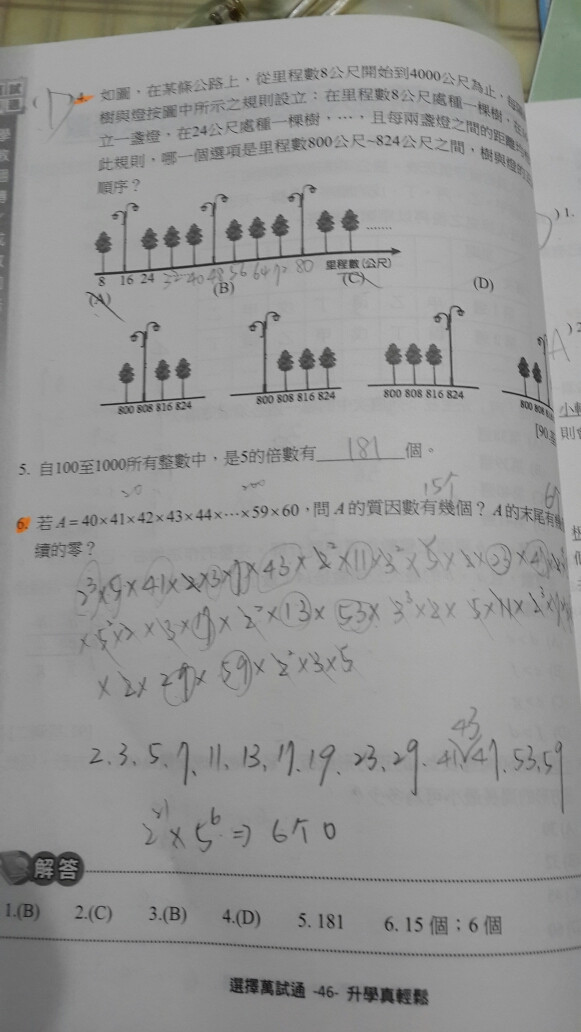 (D) 4. 如圖，在某條公路上，從里程數8公尺開始到4000公尺為止，
樹與燈按圖中所示之規則設立：在里程數8公尺處種一棵樹，在
立一盞燈，在24公尺處種一棵樹，…，且每兩盞燈之間的距離均
此規則，哪一個選項是里程數800公尺~824公尺之間，樹與燈的
順序？
8 16 24 32 40 48 56 64 72 80 里程數(公尺)
(A) (B) (C) (D)
800 808 816 824 800 808 816 824 800 808 816 824 800 808
[90.
5. 自100至1000所有整數中，是5的倍數有 181 個。
15个 6
6. 若A=40×41×42×43×44×…×59×60，問A的質因數有幾個？A的末尾有
續的零？
×2×29×59×2²×3×5
43
2.3.5.7.11.13.17.19.23.29.41.47.53.59
×5⁶ ⇒ 6个0
解答
1.(B) 2.(C) 3.(B) 4.(D) 5. 181 6. 15 個；6 個
選擇萬試通 -46- 升學真輕鬆